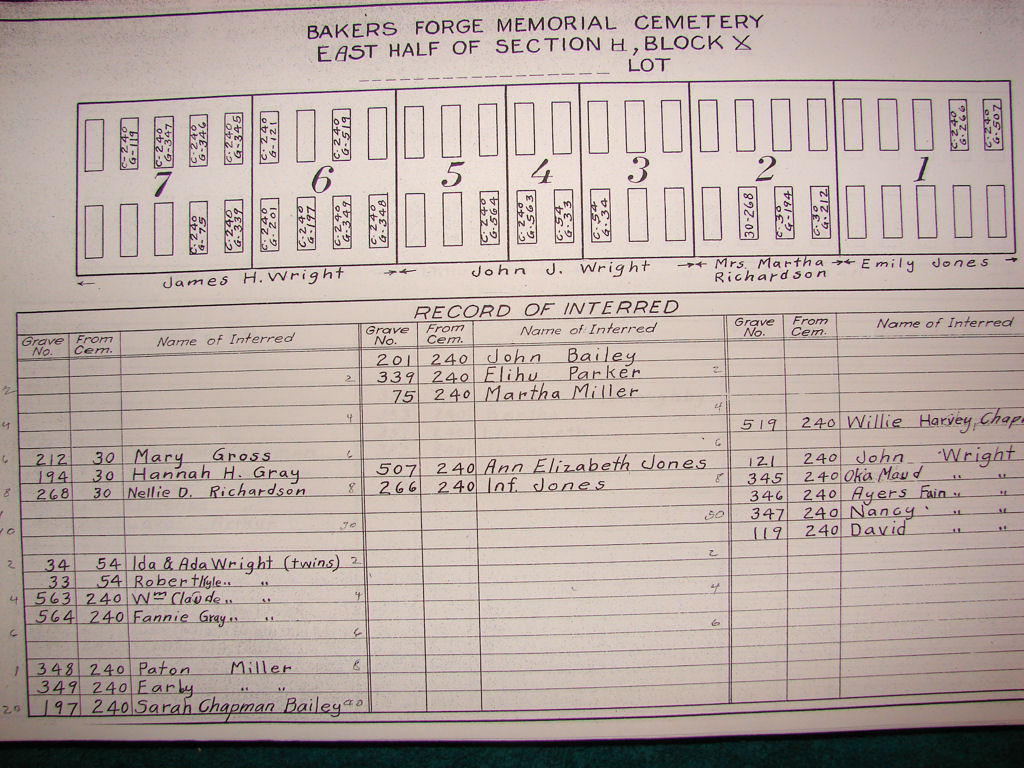 BAKERS FORGE MEMORIAL CEMETERY
EAST HALF OF SECTION H, BLOCK X
LOT
C-240 G-119
C-240 G-347
C-240 G-346
C-240 G-345
C-240 G-121
C-240 G-519
C-240 G-266
C-240 G-507
7 6 5 4 3 2 1
C-240 G-75
C-240 G-339
C-240 G-201
C-240 G-197
C-240 G-349
C-240 G-348
C-240 G-564
C-240 G-563
C-54 G-33
C-54 G-34
30-268
C-30 G-194
C-30 G-212
James H. Wright
John J. Wright
Mrs. Martha Richardson
Emily Jones
RECORD OF INTERRED
Grave No. From Cem. Name of Interred
212 30 Mary Gross
194 30 Hannah H. Gray
268 30 Nellie D. Richardson
34 54 Ida & Ada Wright (twins)
33 54 Robert Kyle " "
563 240 Wm Claude " "
564 240 Fannie Gray " "
348 240 Paton Miller
349 240 Early " "
197 240 Sarah Chapman Bailey
Grave No. From Cem. Name of Interred
201 240 John Bailey
339 240 Elihu Parker
75 240 Martha Miller
507 240 Ann Elizabeth Jones
266 240 Inf. Jones
Grave No. From Cem. Name of Interred
519 240 Willie Harvey, Chap
121 240 John Wright
345 240 Oka Maud " "
346 240 Ayers Fain " "
347 240 Nancy " "
119 240 David " "